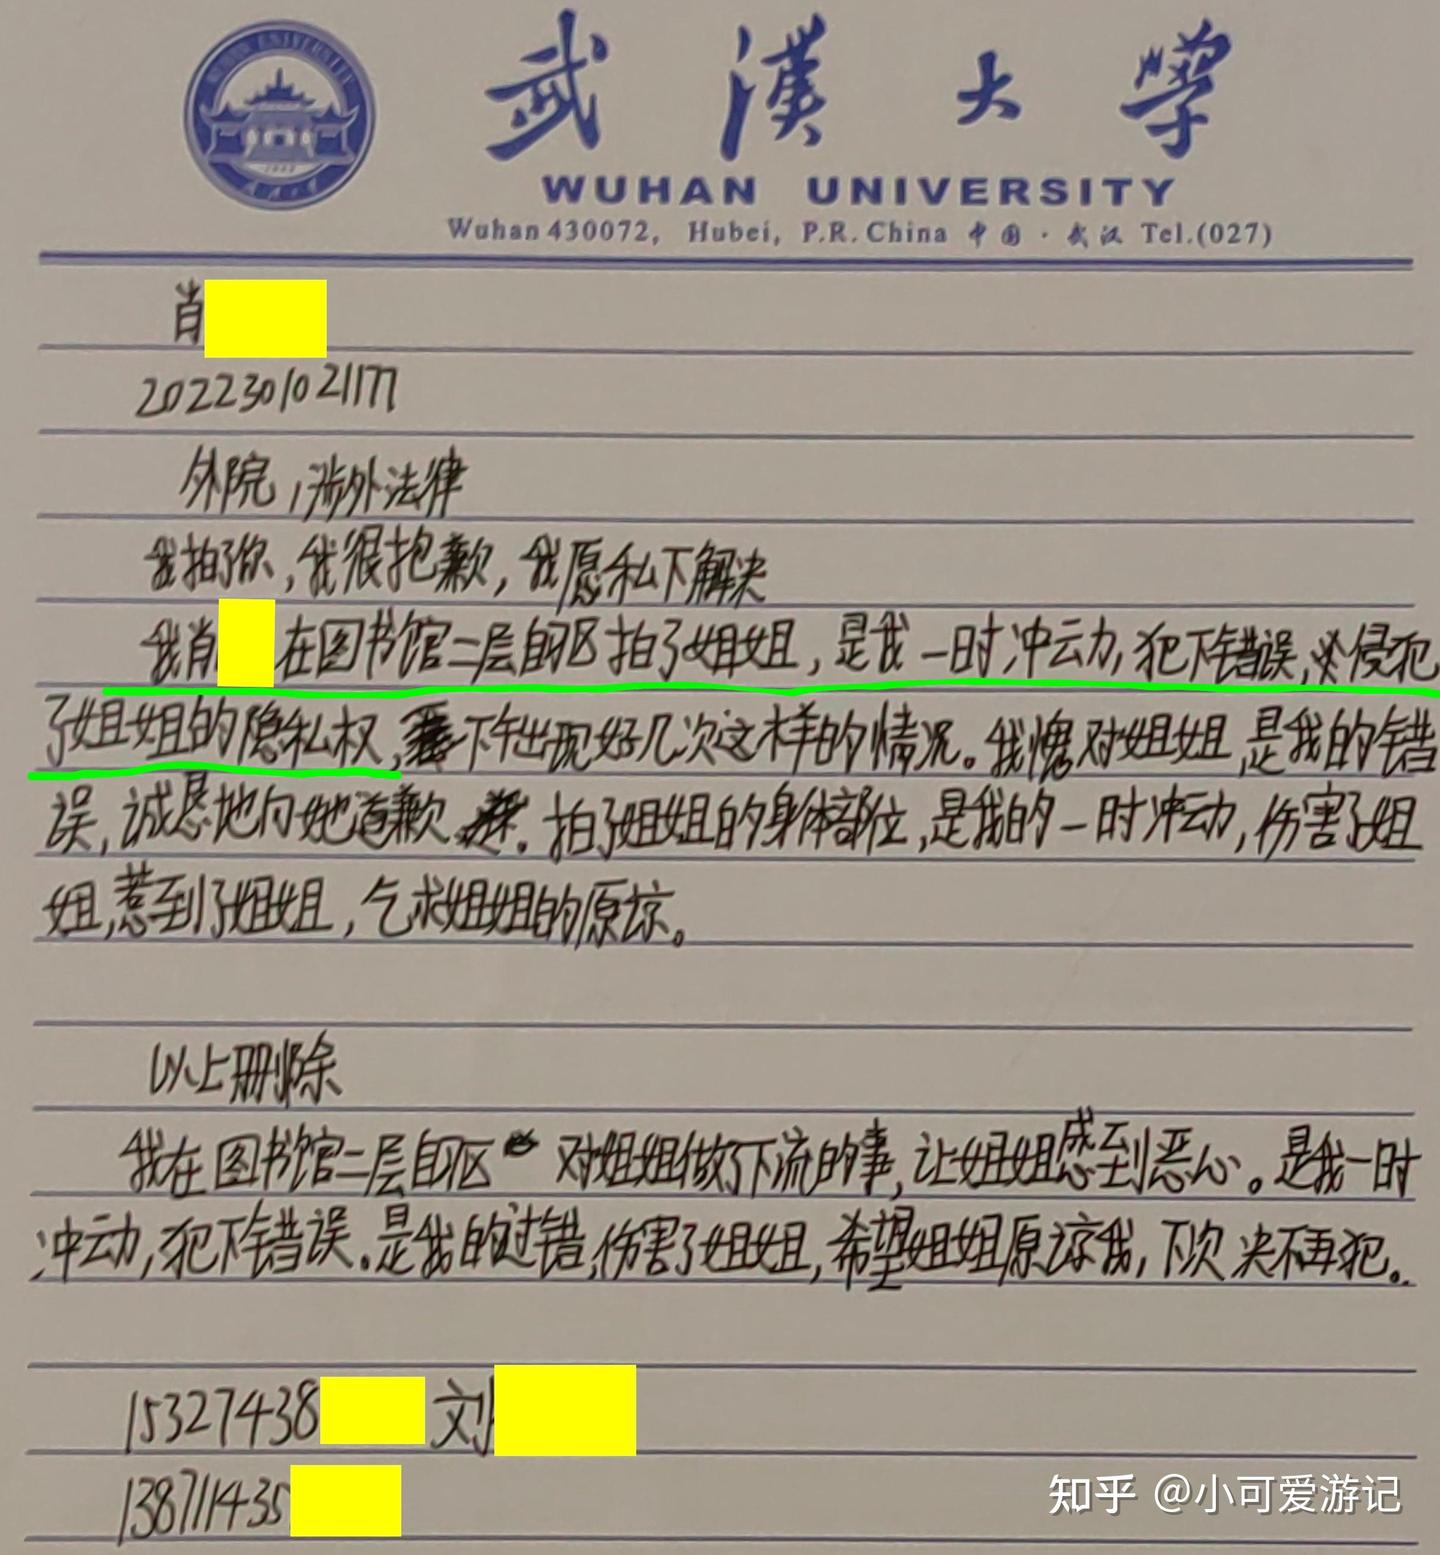 武漢大學
WUHAN UNIVERSITY
Wuhan 430072, Hubei, P.R.China 中国·武汉 Tel.(027)
肖
2022301021177
外院,涉外法律
我拍了你,我很抱歉,我愿私下解决
我肖 在图书馆二层自习区拍了姐姐,是我一时冲动,犯下错误,侵犯
了姐姐的隐私权,下午出现好几次这样的情况。我愧对姐姐,是我的错
误,诚恳地向她道歉。拍了姐姐的身体部位,是我的一时冲动,伤害了姐
姐,惹到了姐姐,乞求姐姐的原谅。
以上删除
我在图书馆二层自习区 对姐姐做了下流的事,让姐姐感到恶心。是我一时
冲动,犯下错误。是我的过错,伤害了姐姐,希望姐姐原谅我,下次决不再犯。
15327438 刘
138711435
知乎 @小可爱游记